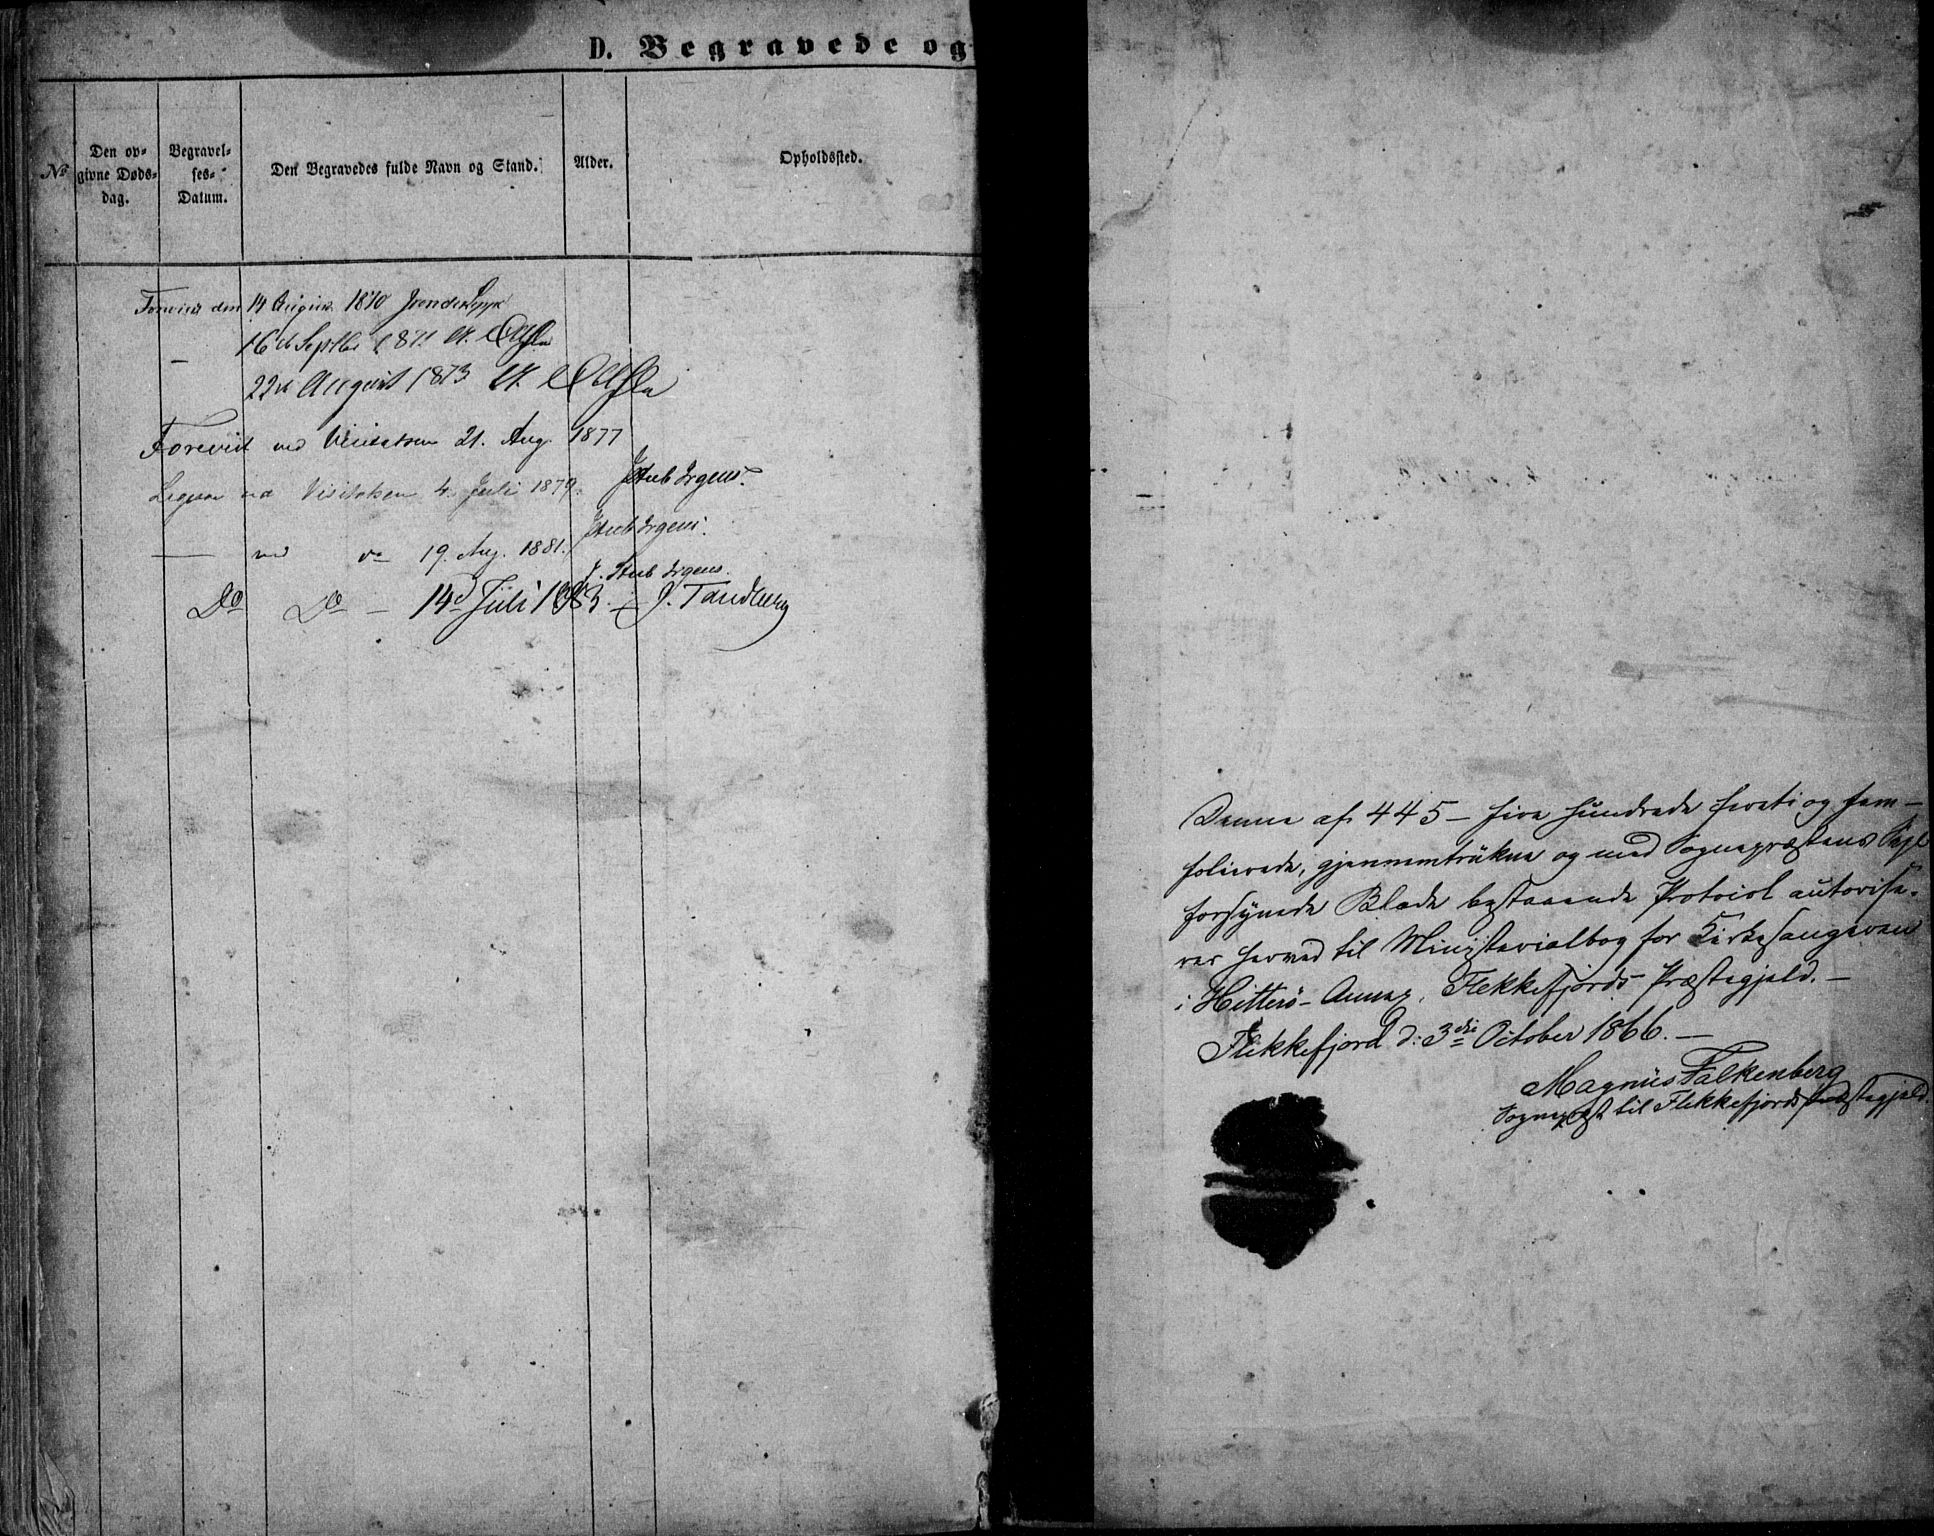 D. Begravede og
No
Den op-
givne Døds-
dag.
Begravel-
ses-
Datum.
Den Begravedes fulde Navn og Stand.
Alder.
Opholdssted.
Forevist den 14 August 1870
16de Septbr 1871
22de August 1873
Forevist ved Visitatsen 21. Aug. 1877
J Stub Irgens.
Ligesaa ved Visitatsen 4. Juli 1879.
J Stub Irgens.
— ved do 19. Aug. 1881.
J. Stub Irgens.
Do Do — 14d Juli 1883. J. Tandberg
Denne af 445 – fire hundrede forti og fem –
folierede, gjennemtrukne og med Sognepræstens Segl
forsynede Blade bestaaende Protocol autorise-
res herved til Ministerialbog for Kirkesangeren
i Hitterö-Annex, Flekkefjords Præstegjeld. –
Flekkefjord d: 3die October 1866. –
Magnus Falkenberg
Sognepræst til Flekkefjords Præstegjeld.